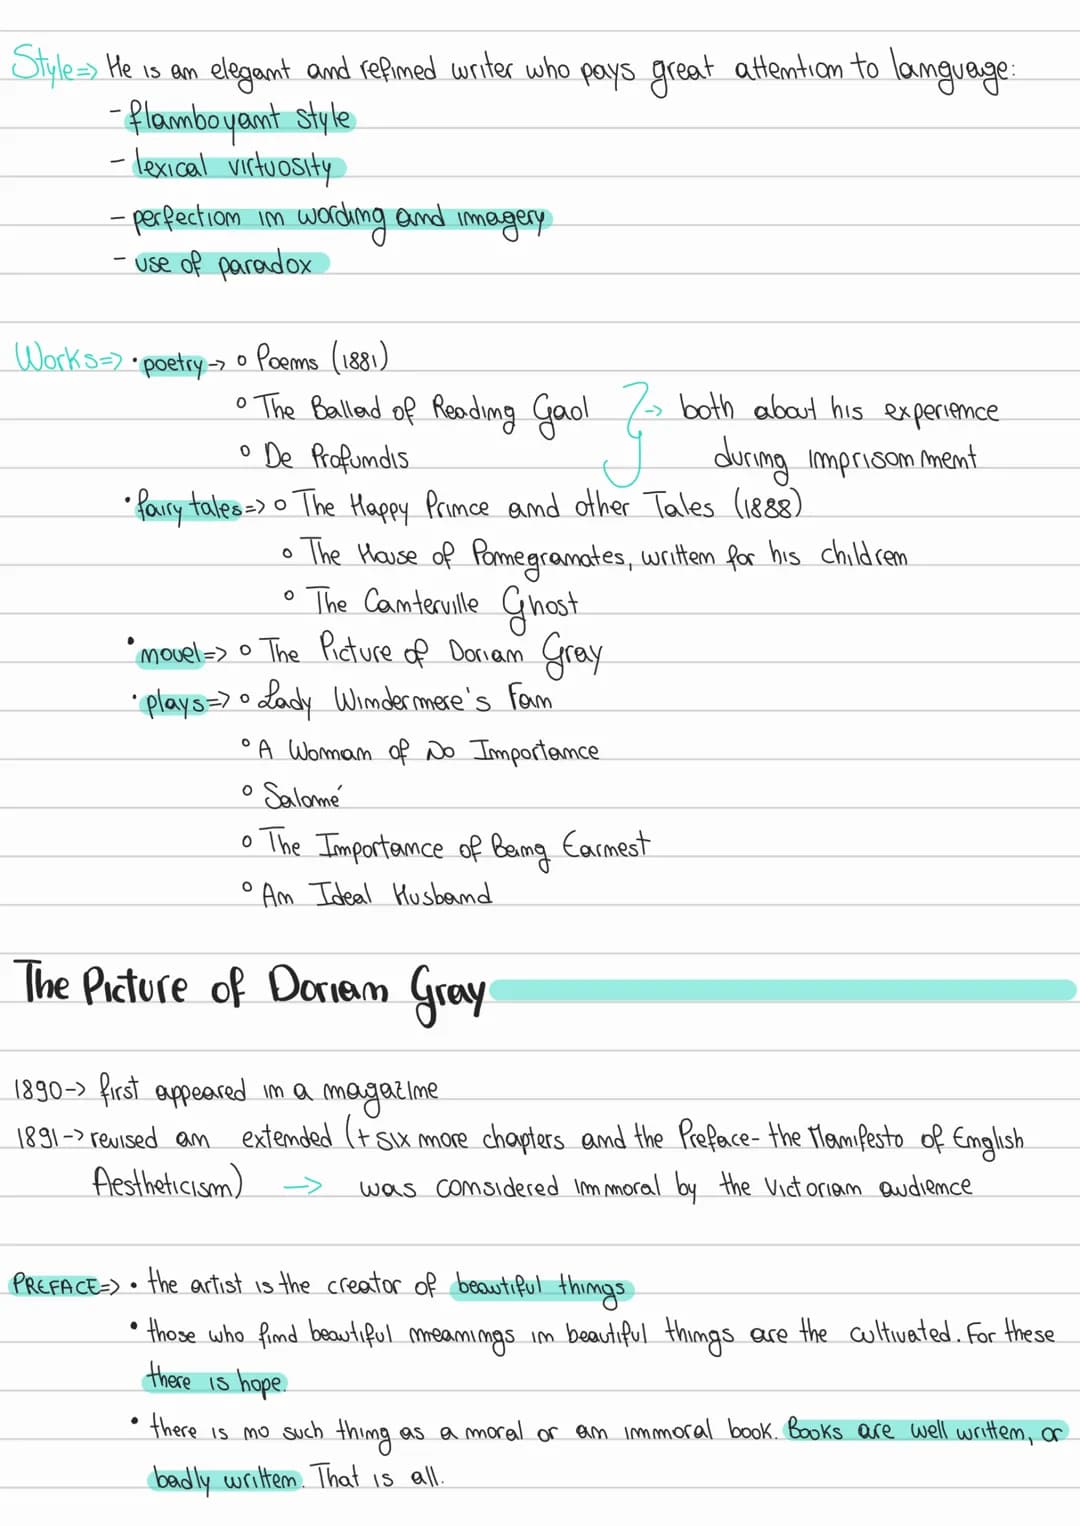 Style=> He is an elegant and refined writer who pays great attention to language:
- flamboyant style
- lexical virtuosity
- perfection in wording and imagery
- use of paradox
Works=> • poetry -> ○ Poems (1881)
○ The Ballad of Reading Gaol } -> both about his experience
○ De Profundis during imprisonment
• fairy tales => ○ The Happy Prince and other Tales (1888)
○ The House of Pomegranates, written for his children
○ The Canterville Ghost
• novel => ○ The Picture of Dorian Gray
• plays => ○ Lady Windermere's Fan
○ A Woman of No Importance
○ Salomé
○ The Importance of Being Earnest
○ An Ideal Husband
The Picture of Dorian Gray
1890 -> first appeared in a magazine
1891 -> revised an extended (+ six more chapters and the Preface - the Manifesto of English
Aestheticism) -> was considered immoral by the Victorian audience
PREFACE => • the artist is the creator of beautiful things
• those who find beautiful meanings in beautiful things are the cultivated. For these
there is hope.
• there is no such thing as a moral or an immoral book. Books are well written, or
badly written. That is all.